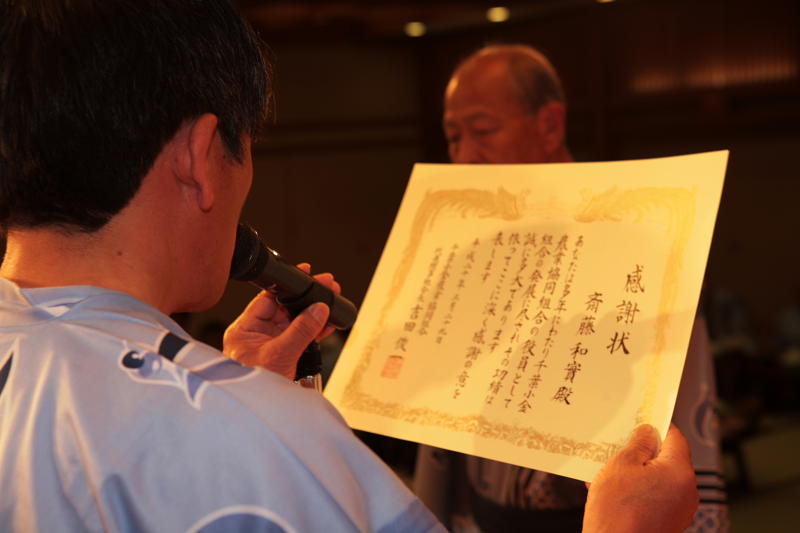 感謝状
斎藤和實殿
あなたは多年にわたり千葉小金
農業協同組合の役員として
組合の発展に尽され その功績は
誠に多大であります
依ってここに深く感謝の意を
表します